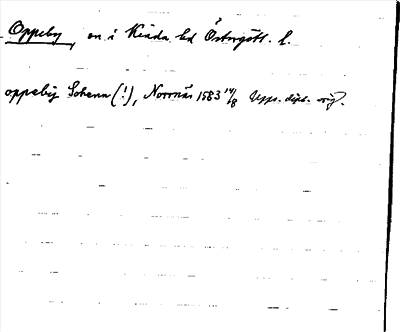 Oppeby, en i Kinda hd Östergötl. l.
oppebÿ Sokenn (!), Norrnäs 1583 14/8 Upps. dipl. orig.